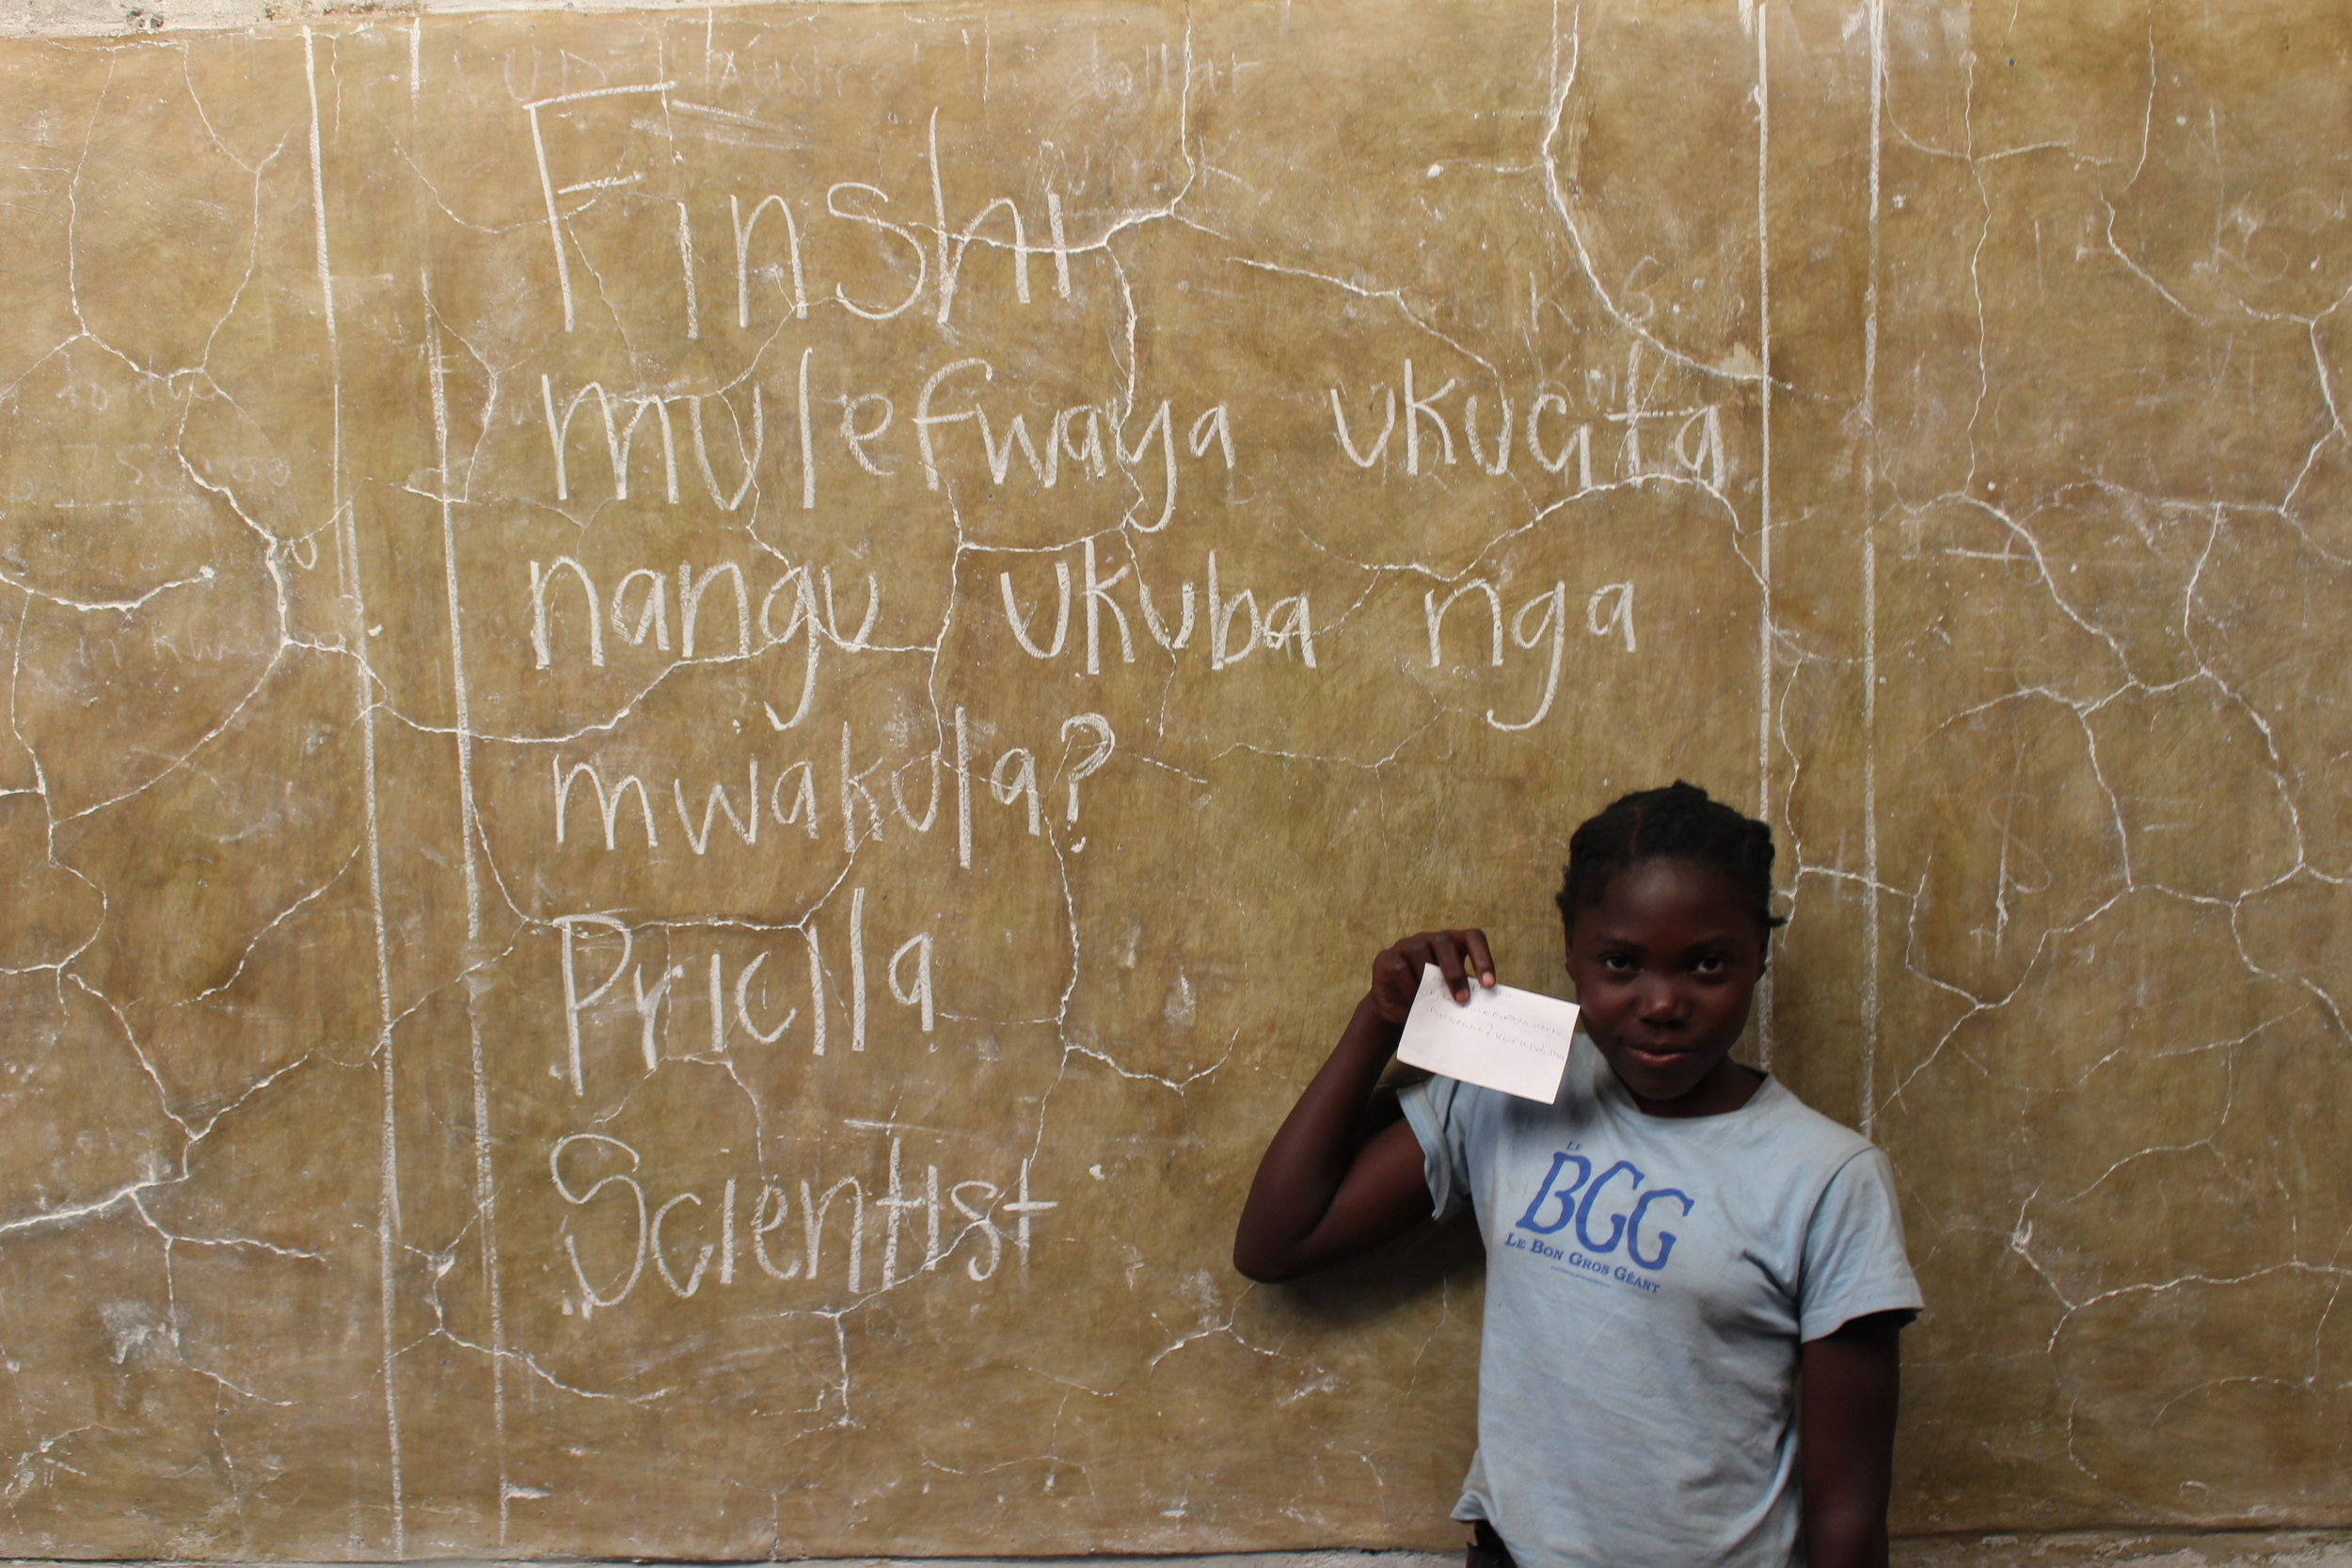 Finshi
mulefwaya ukucita
nangu ukuba nga
mwakula?
Priclla
Scientist
LE
BGG
LE BON GROS GÉANT